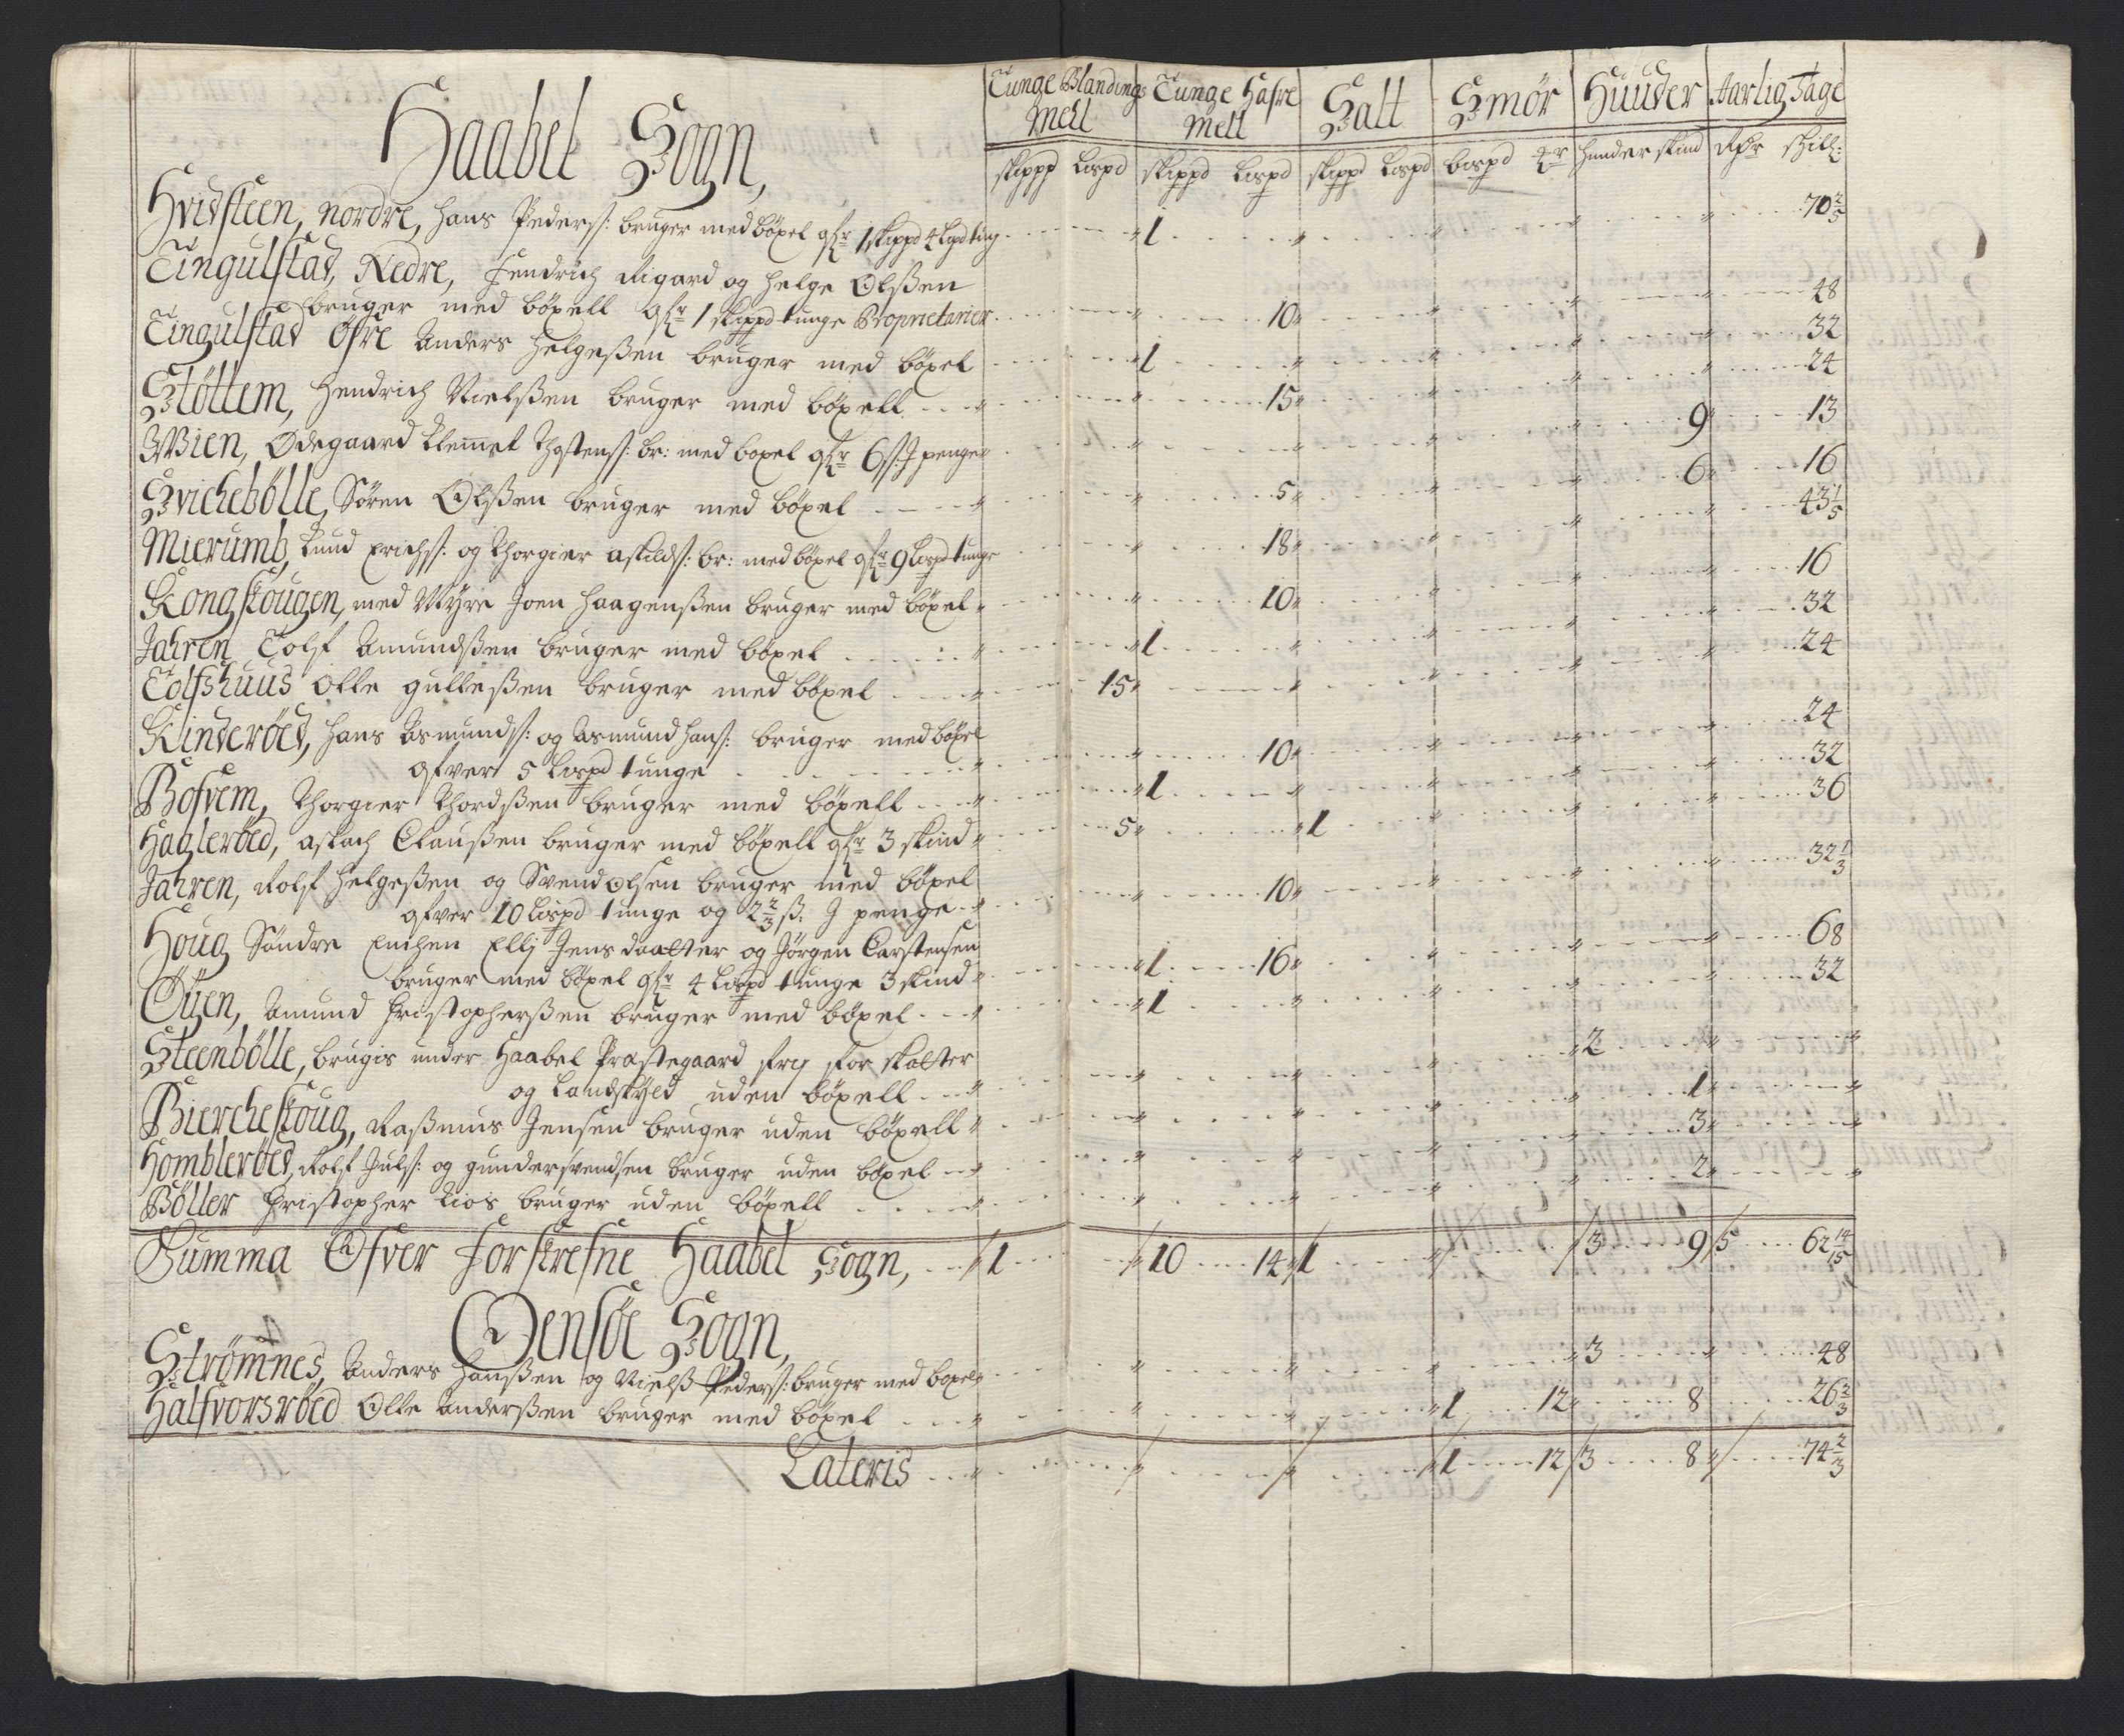 Tunge Blandings Mell | Tunge Hafre Mell | Salt | Smör | Huuder | Aarlig Tage
skippd Lispd | skippd Lispd | skippd Lispd | Lispd | Huuder skind | Rdr skill:
Haabel Sogn,
Hvidsteen, Nordre, Hans Peders: bruger med böxel ofr 1 skippd 4 Lispd tung 1 70 2/5
Tingulstad, Nedre, Fendrich Rigard og Helge Olßen
bruger med böxell ofr 1 skippd tunge Proprietarier 10 48
Tingulstad Öfre Anders Helgeßen bruger med böxel 1 32
Stöttem, Hendrich Nielßen bruger med böxell 15 24
Wien, Ödegaard Klemmet br: med boxel ofr 6 penge 9 13
Svichebölle, Sören Olßen bruger med böxel 5 6 16
Mierumb, Knud Erichs: og Thorgier Askilds: br: med böxel ofr 9 Lispd tunge 18 43 1/5
Kongskougen, med Myre Joen Haagenßen bruger med böxel 10 16
Jahren Tolf Amundßen bruger med böxel 1 32
Tolfshuus Olle Gulleßen bruger med böxel 15 24
Kinderöed, Hans Asmunds: og Asmund Hans: bruger med böxel
ofver 5 Lispd tunge 10 24
Bofvem, Thorgier Thordßen bruger med böxell 1 32
Hagleröed, Aslach Claußen bruger med böxell ofr 3 skind 5 1 36
Jahren, Rolf Helgeßen og Svend Olsen bruger med böxel
ofver 10 Lispd tunge og 2 2/3 ß: penge 10 32 1/3
Houg Söndre Enchen Elli Jens daatter og Jörgen Carstensen
bruger med böxel ofr 4 Lispd tunge 3 skind 1 16 68
Öyen, Amund Christopherßen bruger med böxel 1 32
Steenbölle, brugis under Haabel Præstegaard fry for skatter
og Landskyld uden böxell 2
Biercheskoug, Raßmus Jensen bruger uden böxell 1
Hombleröed, Rolf Juls: og Gunder Svendsen bruger uden böxel 3
Böller Christopher bruger uden böxell 2
Summa Ofver forskrefne Haabel Sogn, 1 10 14 1 3 9 5 62 14/15
Oensöe Sogn,
Strömnes, Anders Hanßen og Nielß Peders: bruger med boxel 3 48
Halfvorsröed Olle Anderßen bruger med böxel 1 12 8 26 2/3
Lateris 1 12 3 8 74 2/3